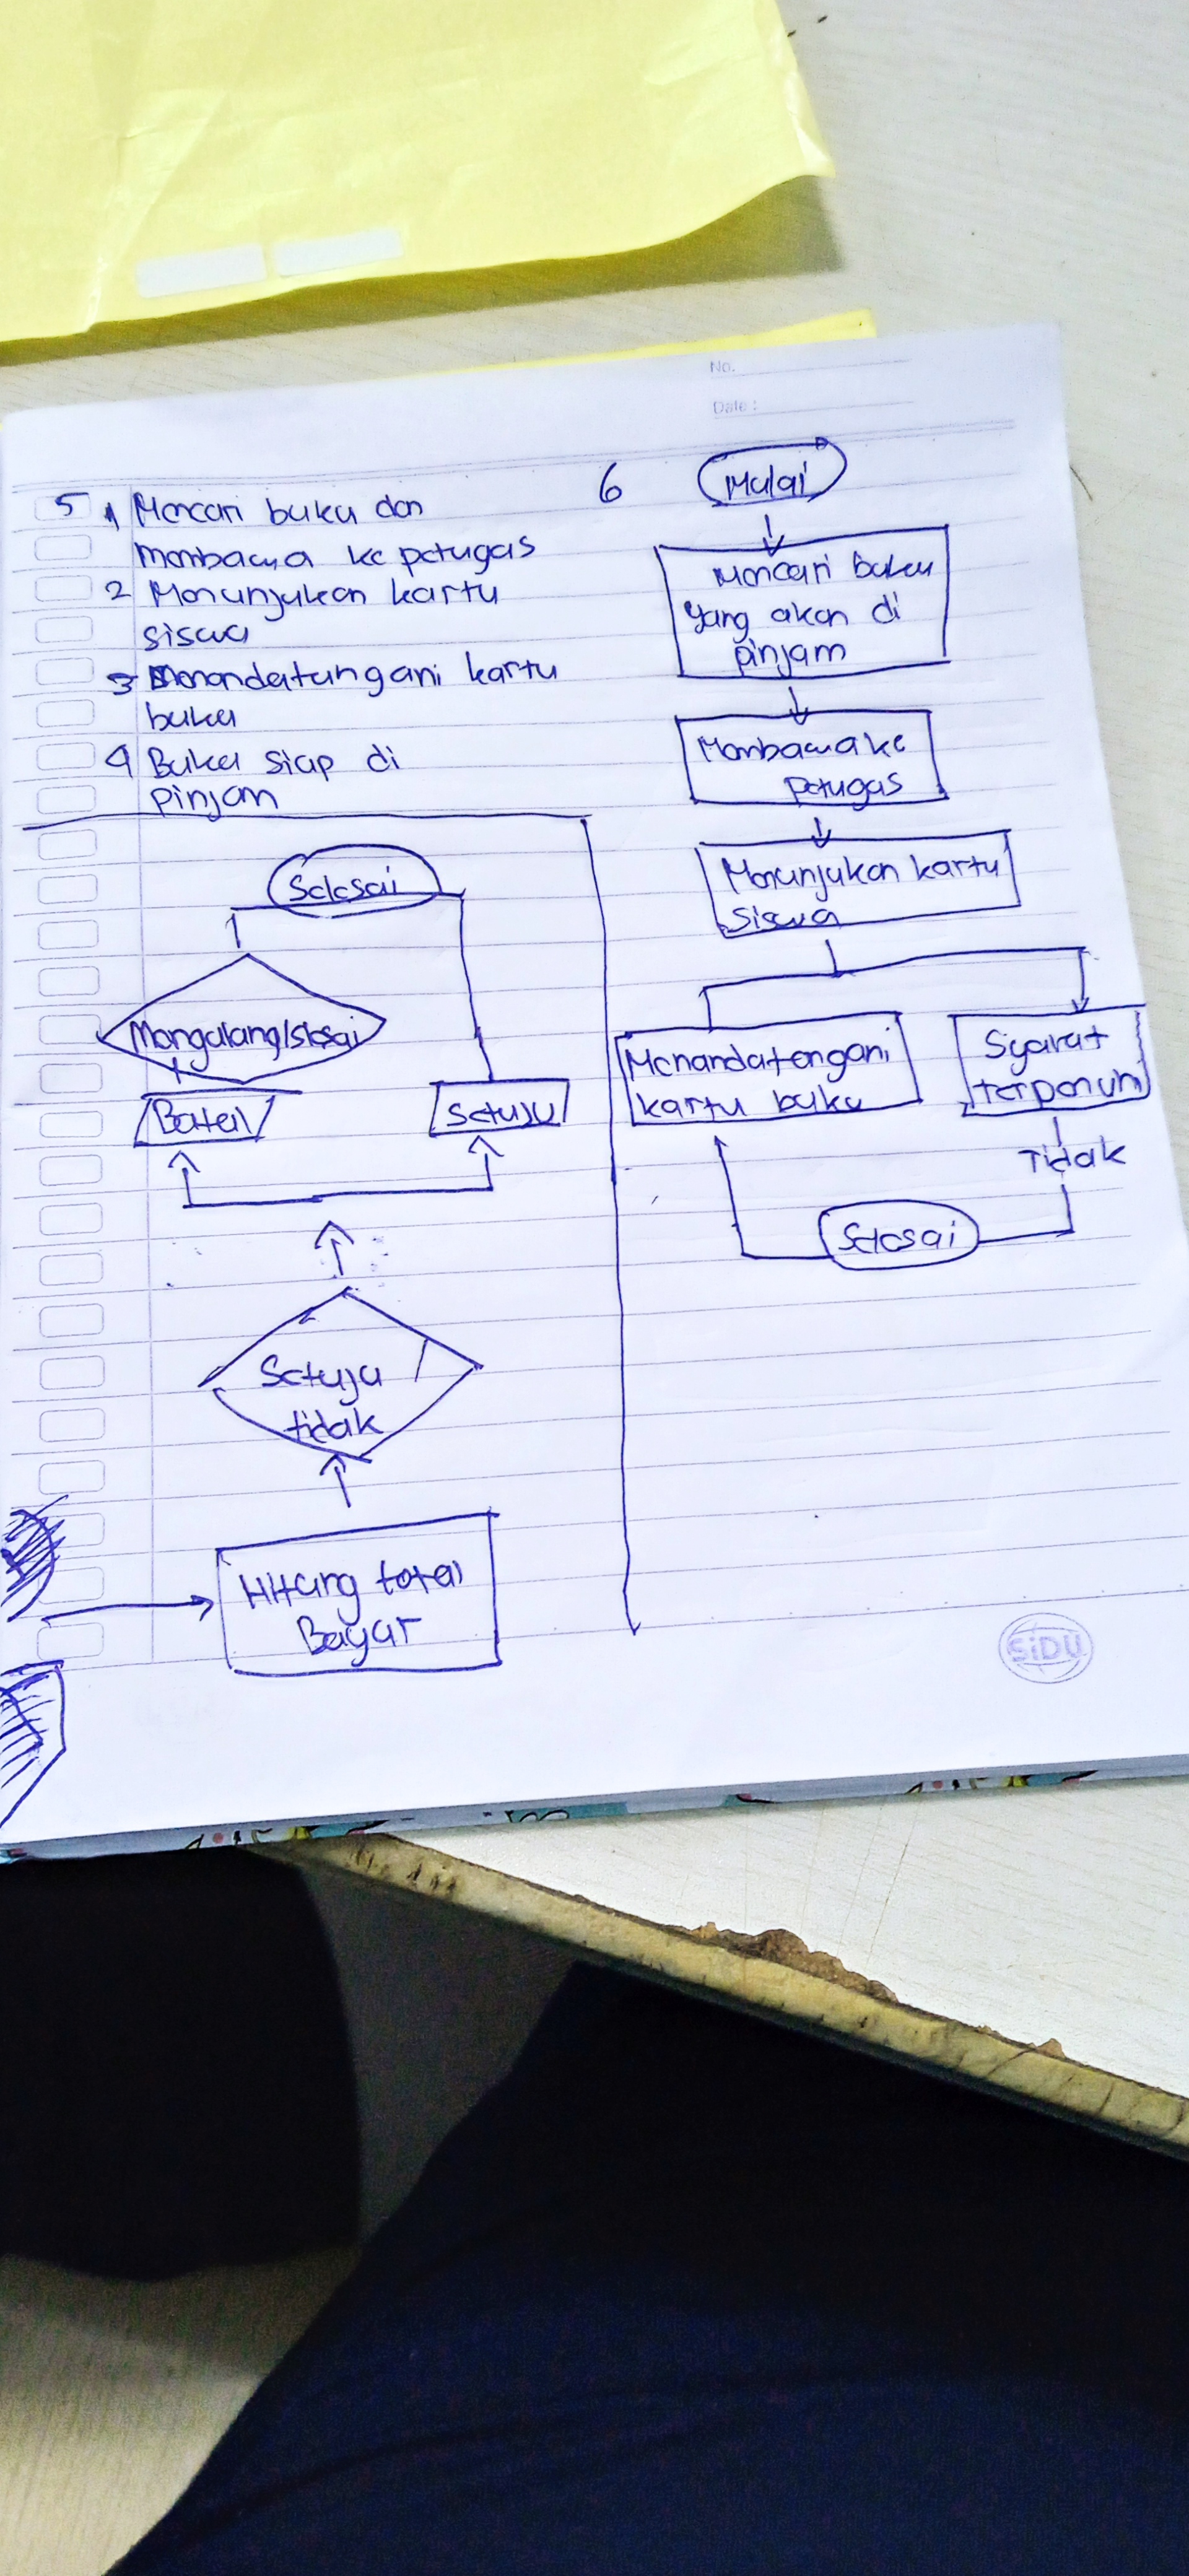 No.
Date :
5 1 Mencari buku dan
membawa ke petugas
2 Menunjukan kartu
siswa
3 Menandatungani kartu
buku
4 Buku siap di
pinjam
Selesai
Mengulang/slesai
Batal
Setuju
Setuju /
tidak
Hitung total
Bayar
6 Mulai
Mencari buku
yang akan di
pinjam
Membawa ke
petugas
Menunjukan kartu
siswa
Menandatengani
kartu buku
Syarat
terpenuh
Tidak
Selesai
SiDU